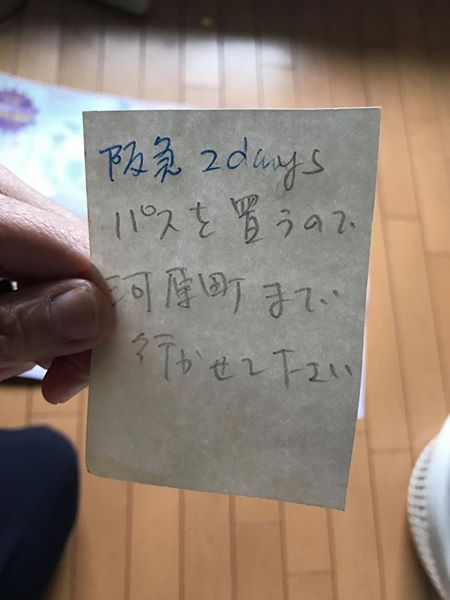 阪急 2days
パスを買うので
河原町まで
行かせて下さい